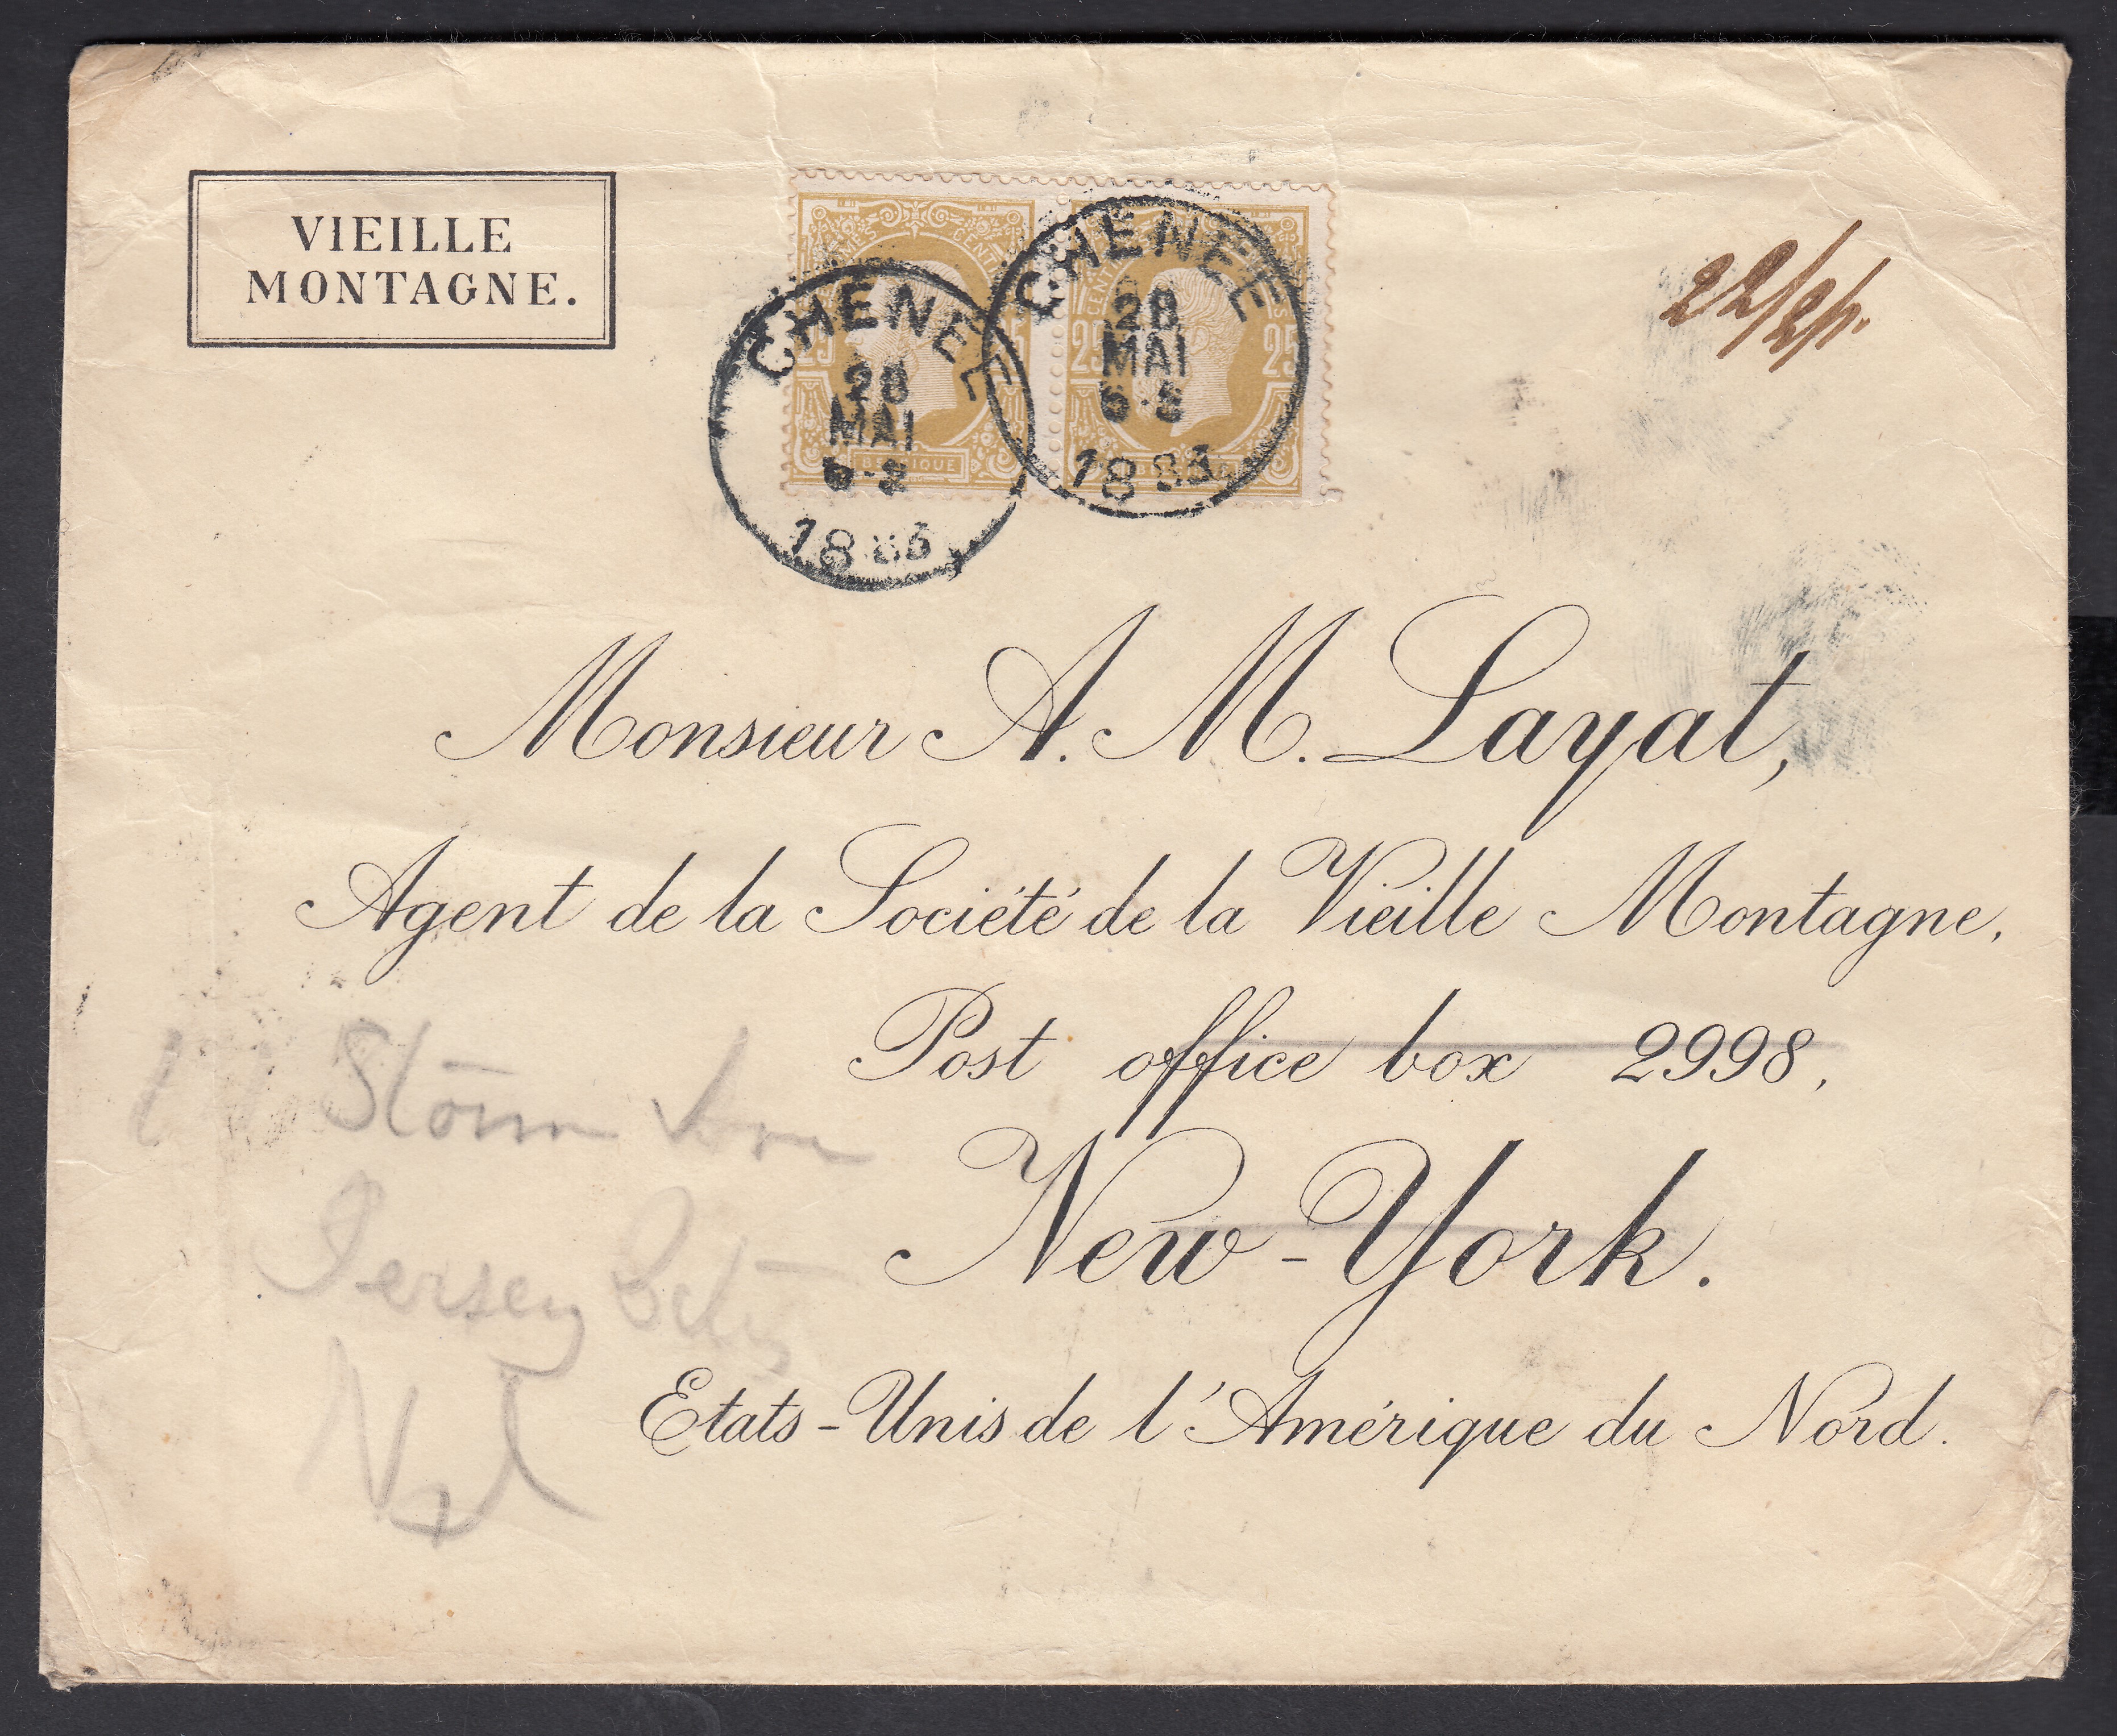 VIEILLE
MONTAGNE.
CENTIMES
25
25 25
BELGIQUE
CHENEE
28
MAI
1883
CHENEE
28
MAI
1883
Monsieur A. M. Layat,
Agent de la Société de la Vieille Montagne,
Post office box 2998,
New-York.
Etats-Unis de l'Amérique du Nord.
Jersey City